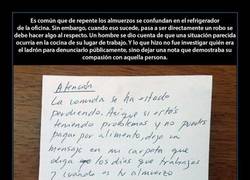 Es común que de repente los almuerzos se confundan en el refrigerador
de la oficina. Sin embargo, cuando eso sucede, pasa a ser directamente un robo se
debe hacer algo al respecto. Un hombre se dio cuenta de que una situación parecida
ocurría en la cocina de su lugar de trabajo. Y lo que hizo no fue investigar quién era
el ladrón para denunciarlo públicamente, sino dejar una nota que demostraba su
compasión con aquella persona.
Atención
La comida se ha estado
perdiendo. Así que si estás
teniendo problemas y no puedes
pagar por alimento, deja un
mensaje en mi carpeta que
diga los días que trabajas
y cuando es tu almuerzo